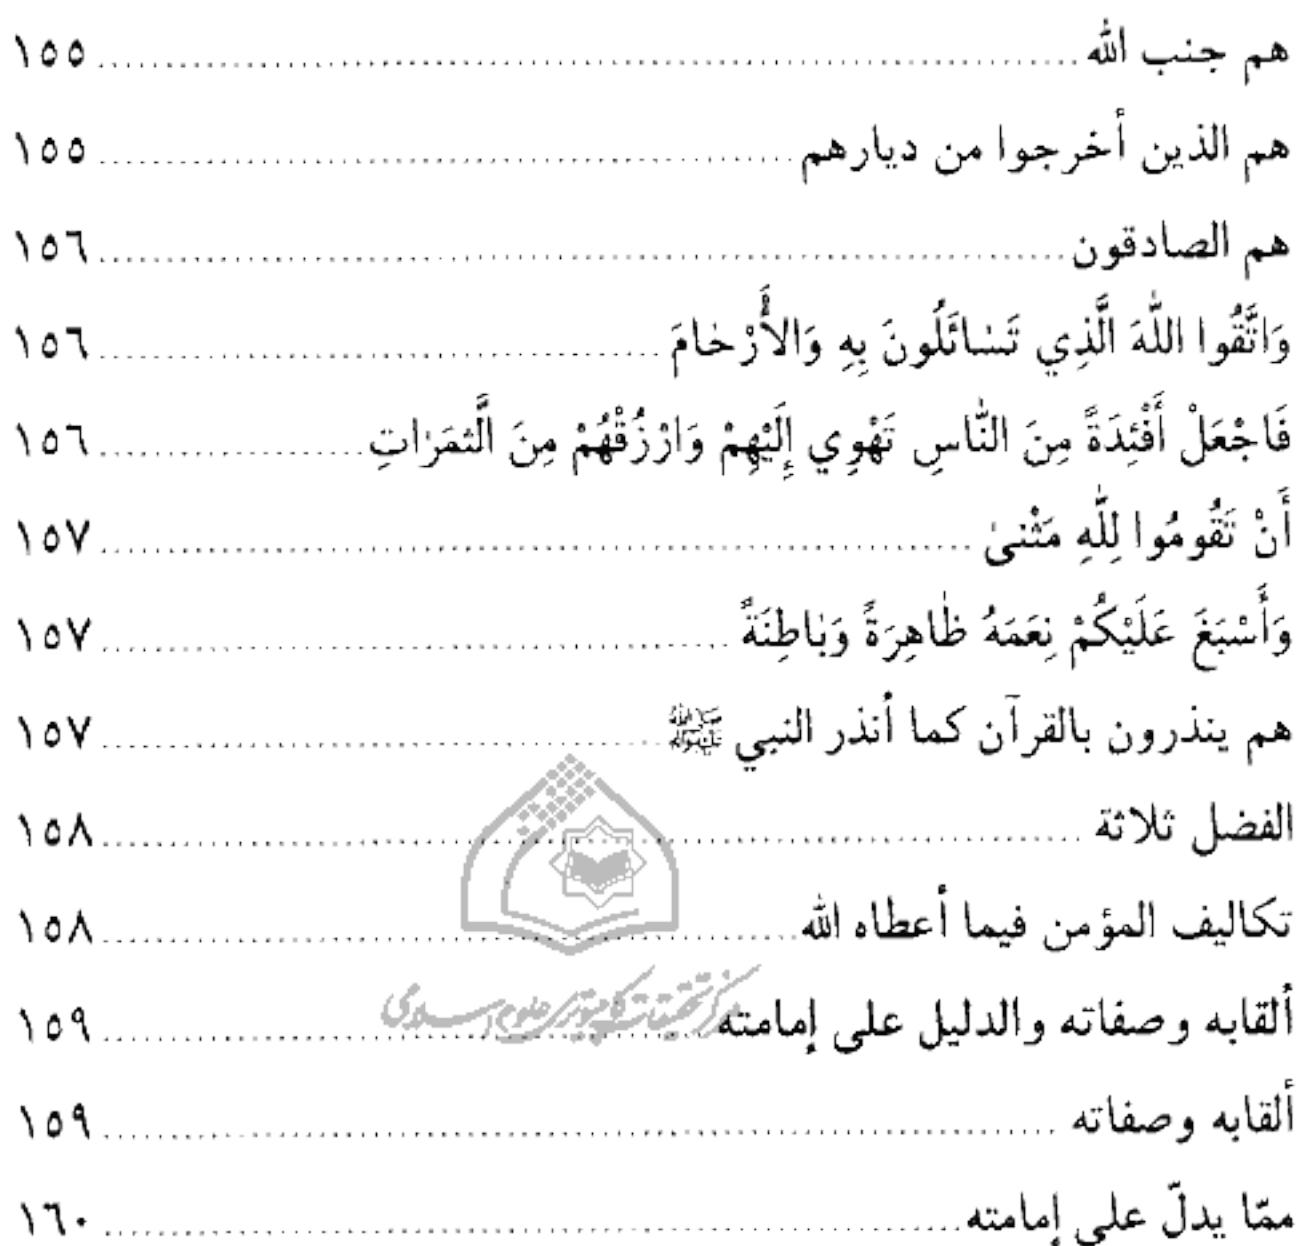 هم جنب الله ..... ١٥٥
هم الذين أخرجوا من ديارهم ..... ١٥٥
هم الصادقون ..... ١٥٦
وَاتَّقُوا اللّٰهَ الَّذِي تَسٰائَلُونَ بِهِ وَالأَْرْحٰامَ ..... ١٥٦
فَاجْعَلْ أَفْئِدَةً مِنَ النّٰاسِ تَهْوِي إِلَيْهِمْ وَارْزُقْهُمْ مِنَ الَّثمَرٰاتِ ..... ١٥٦
أَنْ تَقُومُوا لِلّٰهِ مَثْنىٰ ..... ١٥٧
وَأَسْبَغَ عَلَيْكُمْ نِعَمَهُ ظٰاهِرَةً وَبٰاطِنَةً ..... ١٥٧
هم ينذرون بالقرآن كما أنذر النبي ﷺ ..... ١٥٧
الفضل ثلاثة ..... ١٥٨
تكاليف المؤمن فيما أعطاه الله ..... ١٥٨
ألقابه وصفاته والدليل على إمامته ..... ١٥٩
مركز تحقیقات کامپیوتری علوم اسلامی
ألقابه وصفاته ..... ١٥٩
ممّا يدلّ على إمامته ..... ١٦٠